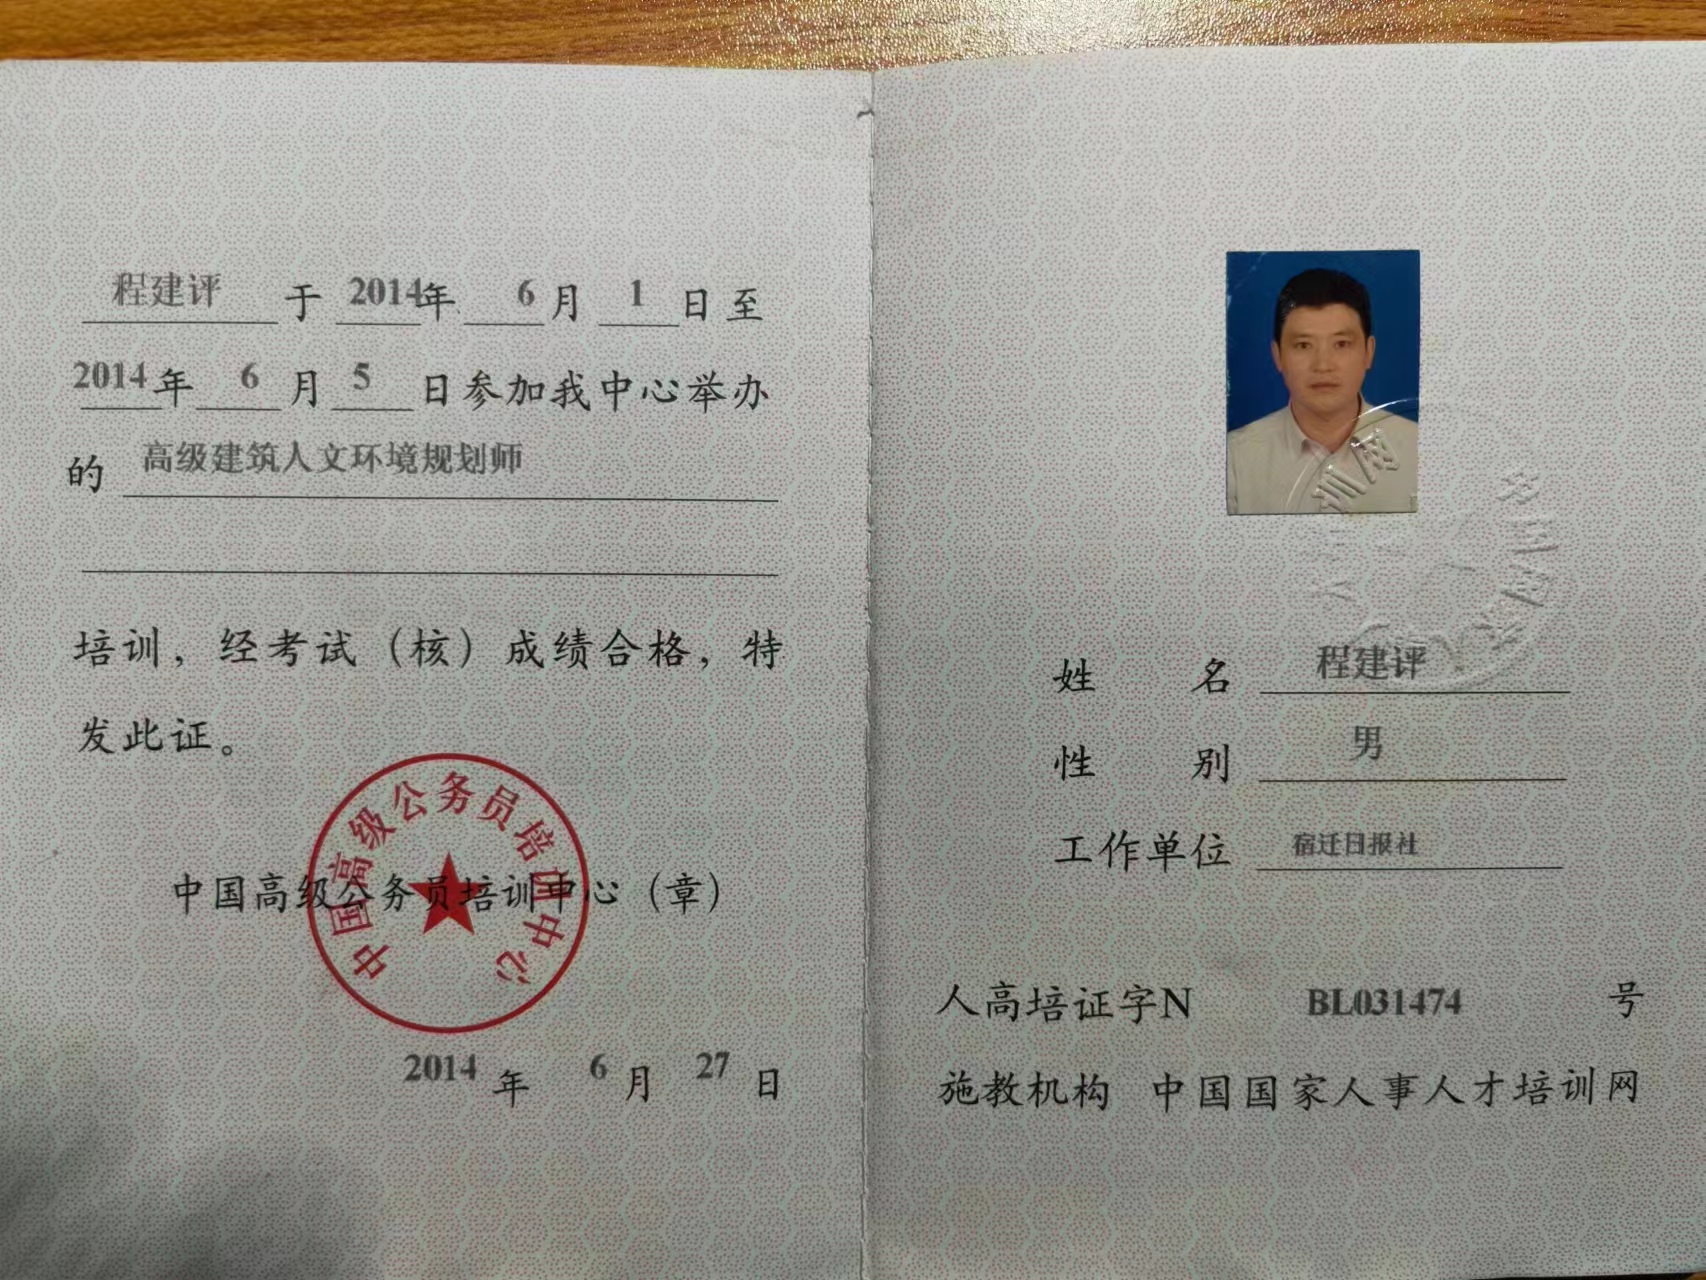 程建评 于 2014年 6 月 1 日至
2014年 6 月 5 日参加我中心举办
的 高级建筑人文环境规划师
培训，经考试（核）成绩合格，特
发此证。
中国高级公务员培训中心
中国高级公务员培训中心（章）
2014 年 6 月 27 日
训网
姓 名 程建评
性 别 男
工作单位 宿迁日报社
人高培证字N BL031474 号
施教机构 中国国家人事人才培训网